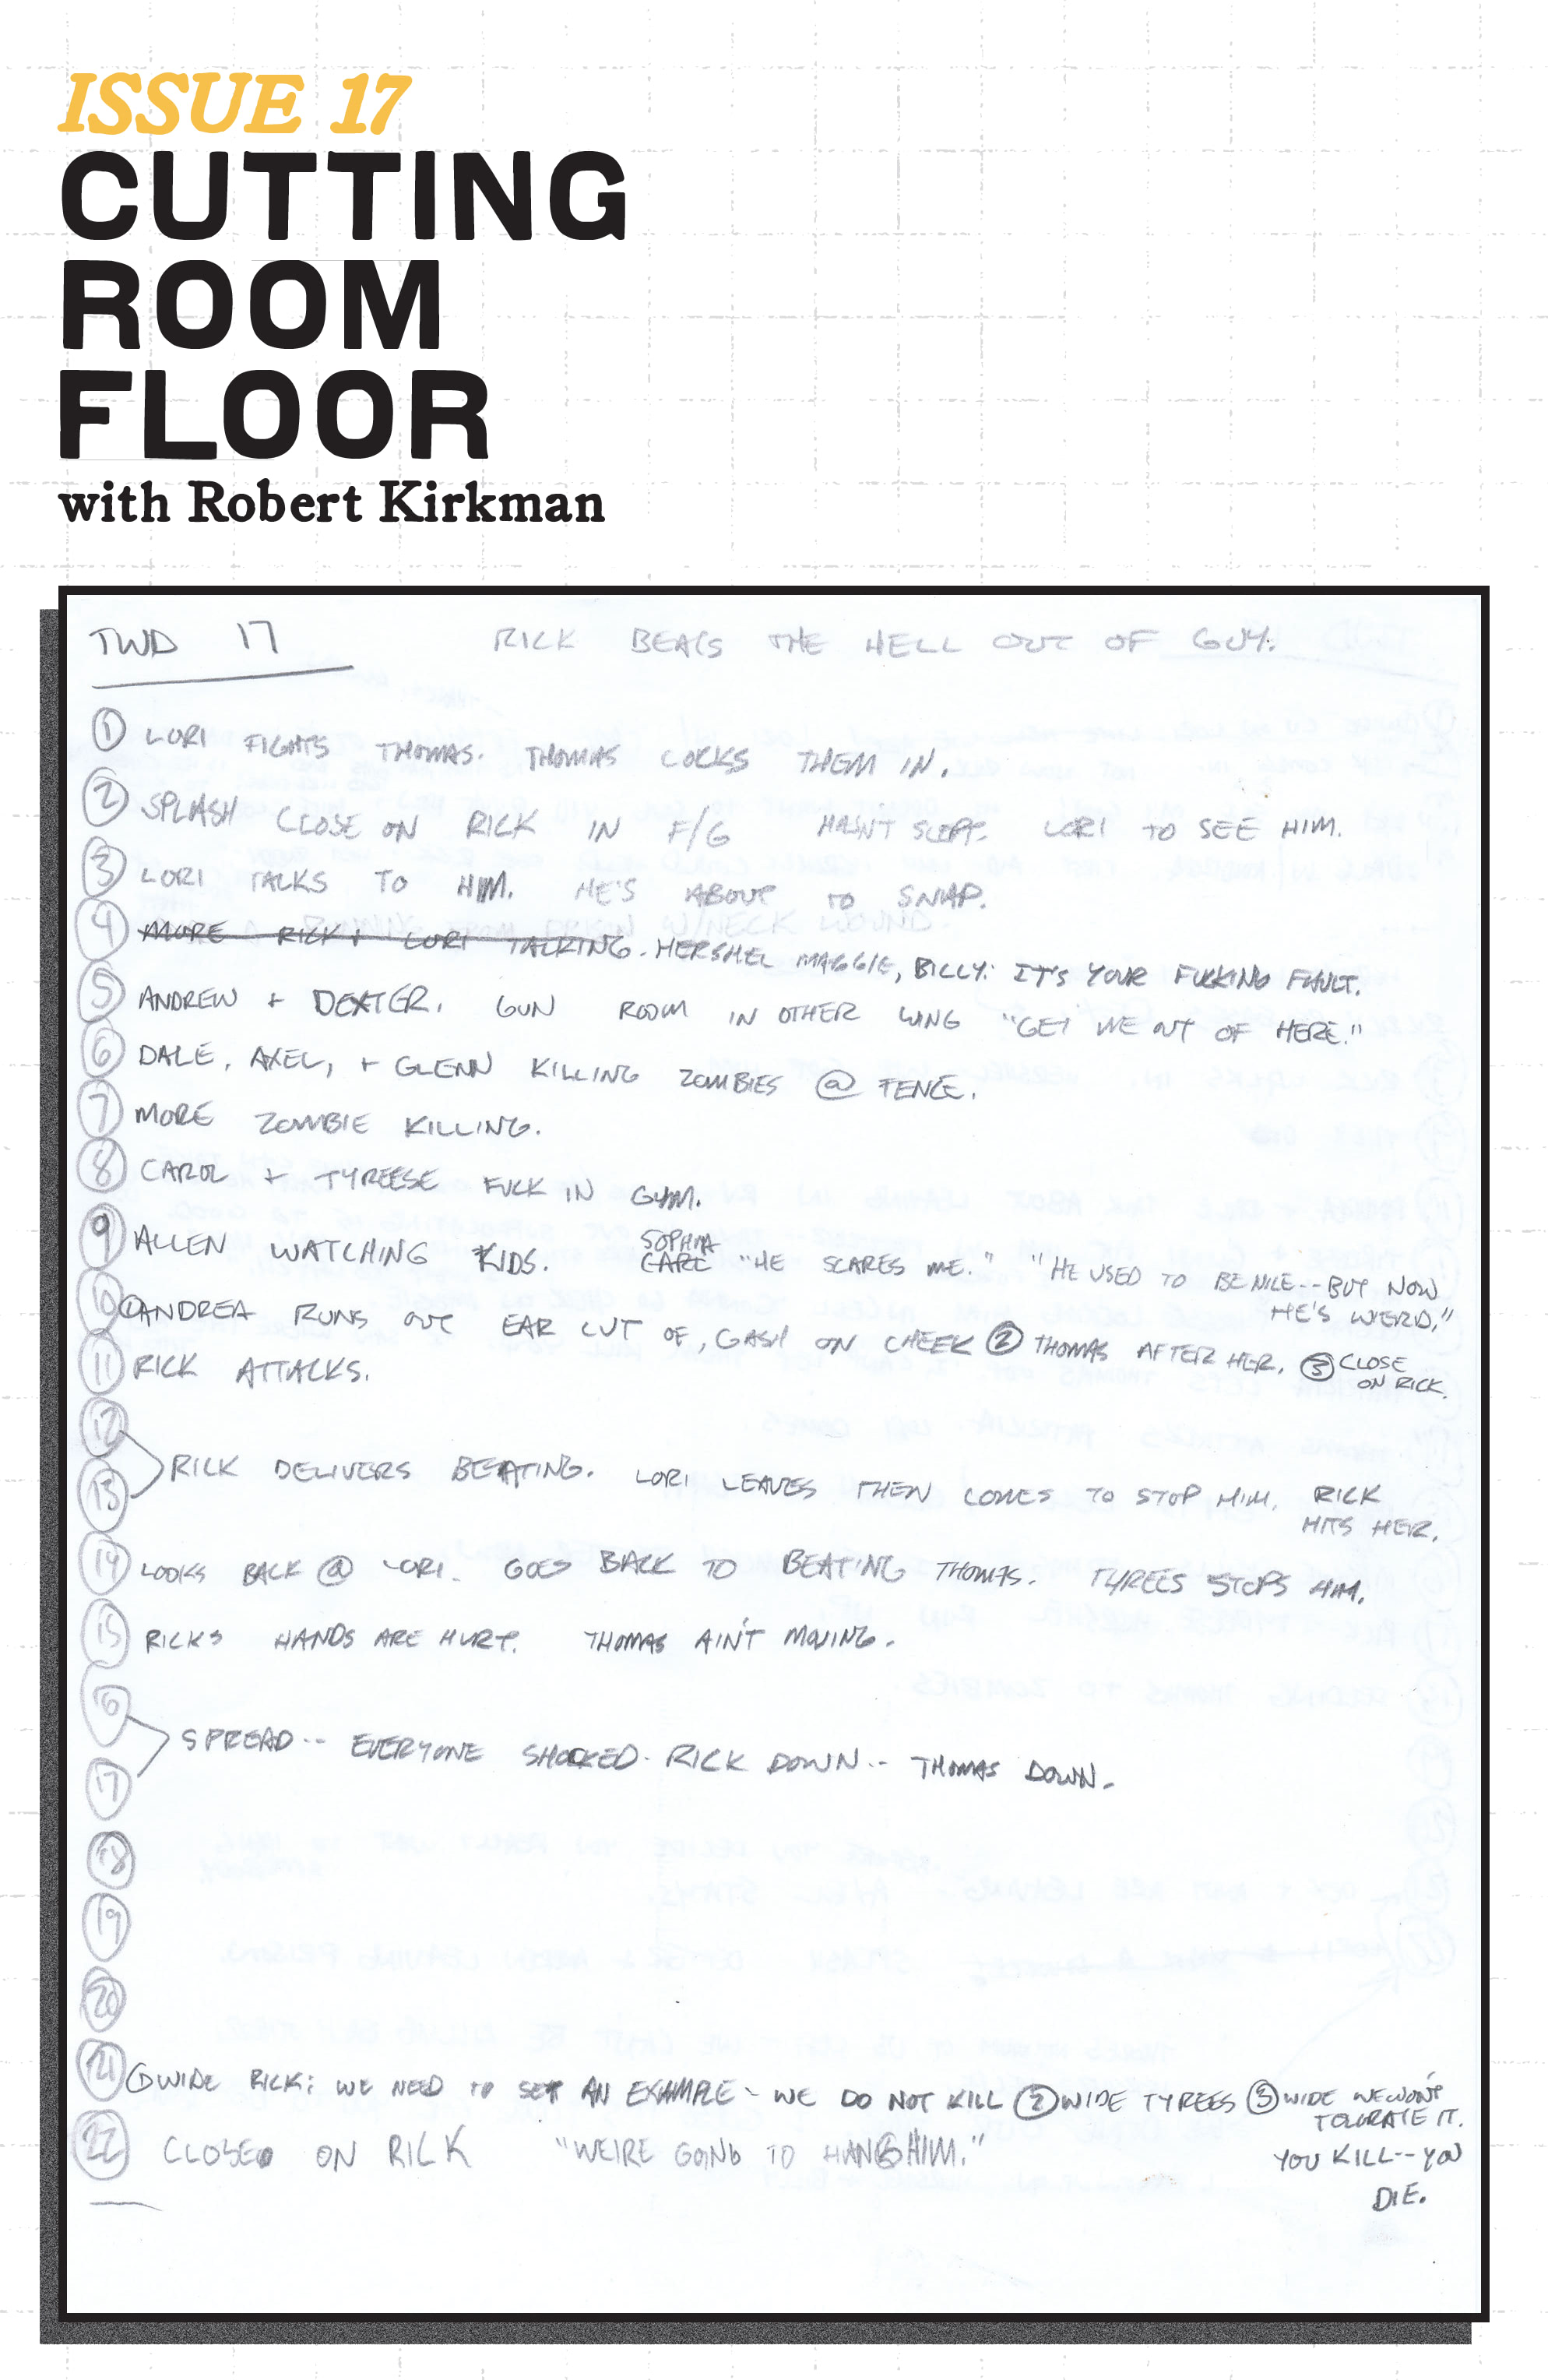 ISSUE 17
CUTTING
ROOM
FLOOR
with Robert Kirkman
TWD 17 RICK BEATS THE HELL OUT OF GUY.
1 LORI FIGHTS THOMAS. THOMAS LOCKS THEM IN.
2 SPLASH CLOSE ON RICK IN F/G HASN'T SLEPT. LORI TO SEE HIM.
3 LORI TALKS TO HIM. HE'S ABOUT TO SNAP.
4 MORE RICK + LORI TALKING. HERSHEL MAGGIE, BILLY: IT'S YOUR FUCKING FAULT.
5 ANDREW + DEXTER. GUN ROOM IN OTHER WING "GET ME OUT OF HERE."
6 DALE, AXEL, + GLENN KILLING ZOMBIES @ FENCE.
7 MORE ZOMBIE KILLING.
8 CAROL + TYREESE FUCK IN GYM.
SOPHIA
9 ALLEN WATCHING KIDS. CARL "HE SCARES ME." "HE USED TO BE NICE-- BUT NOW
HE'S WEIRD."
10 1 ANDREA RUNS OUT EAR CUT OF, GASH ON CHEEK 2 THOMAS AFTER HER. 3 CLOSE
ON RICK.
11 RICK ATTACKS.
12
13 RICK DELIVERS BEATING. LORI LEAVES THEN COMES TO STOP HIM. RICK
HITS HER.
14 LOOKS BACK @ LORI. GOES BACK TO BEATING THOMAS. TYREES STOPS HIM.
15 RICKS HANDS ARE HURT. THOMAS AIN'T MOVING.
16
SPREAD-- EVERYONE SHOCKED. RICK DOWN-- THOMAS DOWN.
17
18
19
20
21 1 WIDE RICK: WE NEED TO SET AN EXAMPLE - WE DO NOT KILL 2 WIDE TYREES 3 WIDE WE WON'T
TOLORATE IT.
22 CLOSE ON RICK "WE'RE GOING TO HANG HIM." YOU KILL-- YOU
DIE.